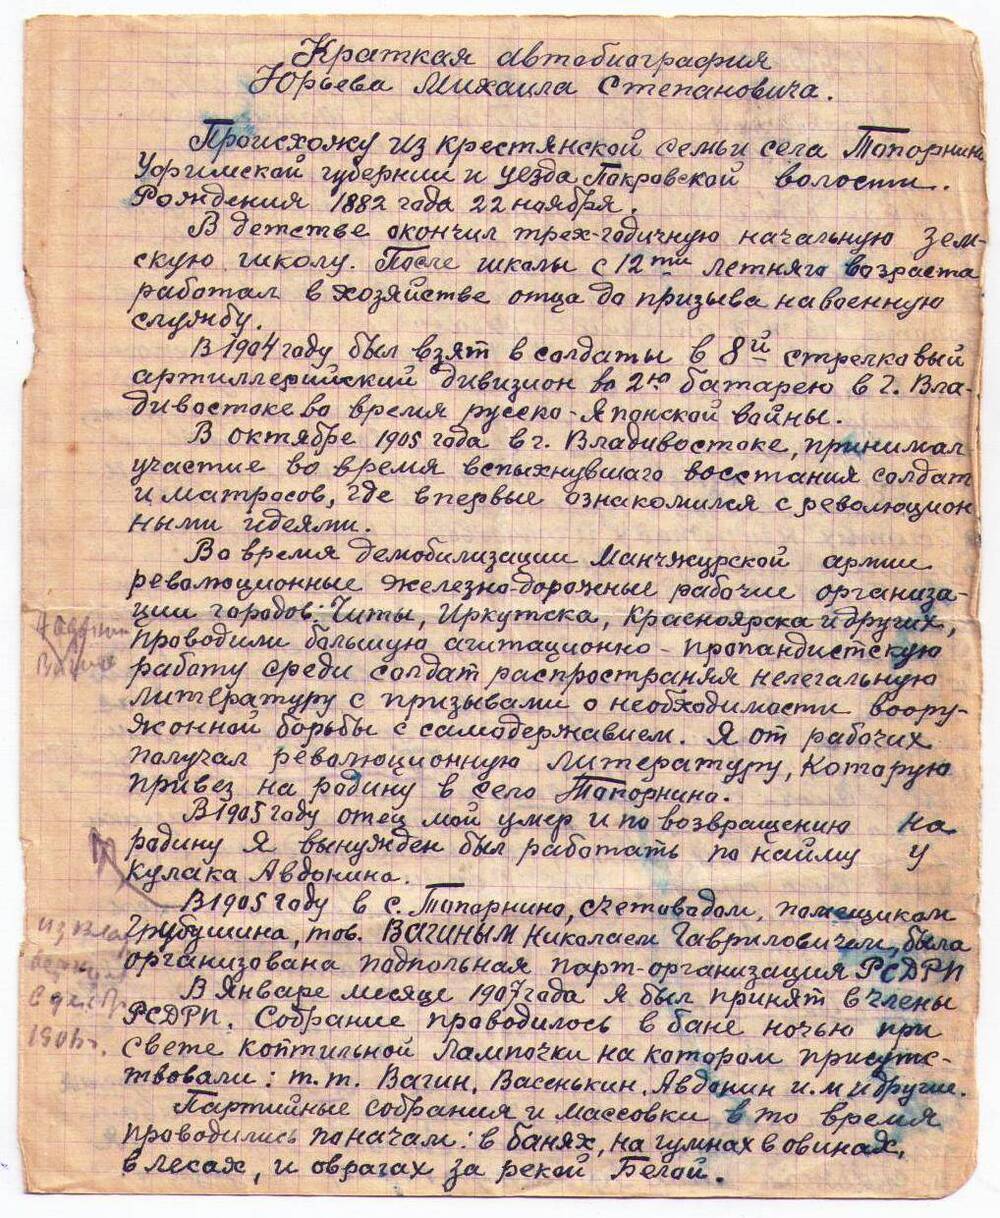 Краткая автобиография
Юрьева Михаила Степановича.
Происхожу из крестянской семьи села Топорнина
Уфимской губернии и уезда Покровской волости.
Рождения 1882 года 22 ноября.
В детстве окончил трех-годичную начальную зем-
скую школу. После школы с 12ти летняго возраста
работал в хозяйстве отца до призыва на военную
службу.
В 1904 году был взят в солдаты в 8й стрелковый
артиллерийский дивизион во 2ю батарею в г. Вла-
дивостоке во время русско-Японской войны.
В октябре 1905 года в г. Владивостоке, принимал
участие во время вспыхнувшаго восстания солдат
и матросов, где впервые ознакомился с революцион
ными идеями.
Во время демобилизации Манчжурской армии
революционные железно-дорожные рабочие организа-
ции городов: Читы, Иркутска, Красноярска и других,
проводили большую агитационно-пропандистскую
работу среди солдат распространяя нелегальную
литературу с призывами о необходимости воору-
жонной борьбы с самодержавием. Я от рабочих
получал революционную литературу, которую
привез на родину в село Топорнино.
В 1905 году отец мой умер и по возвращению на
родину Я вынужден был работать по найму у
кулака Авдонина.
В 1905 году в с. Топорнино, счетоводом, помещиком
Грубушина, тов. ВАГИНЫМ Николаем Гавриловичем, была
организована подпольная парт-организация РСДРП
В Январе месяце 1907 года я был принят в члены
РСДРП. Собрание проводилось в бане ночью при
свете коптильной лампочки на котором присутс-
твовали: т.т. Вагин, Васенькин, Авдонин и. м и другие.
Партийные собрания и массовки в то время
проводились поначам: в банях, на гумнах в овинах,
в лесах, и оврагах за рекой Белой.